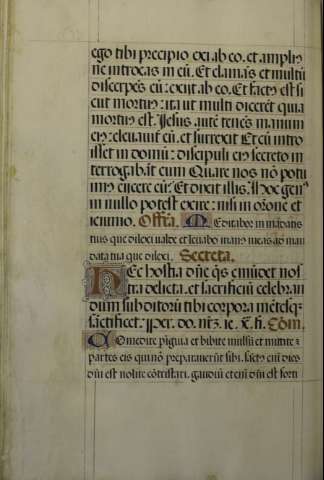 ego tibi precipio exi ab eo. et ampli⁹
ne introeas in eū. Et clamās et multū
discerpēs eū: exijt ab eo. Et fact⁹ est si
cut mortu⁹: ita ut multi dicerēt quia
mortu⁹ est. Jesus autē tenēs manum
ei⁹: eleuauit eū. et surrexit Et cū intro
isset in domū: discipuli ei⁹ secreto in
terrogabāt eum Quare nos nō potu
im⁹ eijcere eū: Et dixit illis. Hoc gen⁹
in nullo potest exire: nisi in orōne et
ieiunio. Offta. Meditabor in mādatis
tuis que dilexi ualde et leuabo man⁹ meas ad man
data tua que dilexi. Secreta.
Hec hostia dn̄e q̄s emūdet nos
tra delicta. et sacrificiū celebran
dum subditorū tibi corpora mētesq̄
sāctificet. Per. do. nr̄z. ie. x̄. fi. Cōm.
Comedite pīguia et bibite mulsū et mittite
partes eis qui nō preparauerūt sibi. sāct⁹ enī dies
dn̄i est nolite cōtristari. gaudiū eteni dn̄i est forti